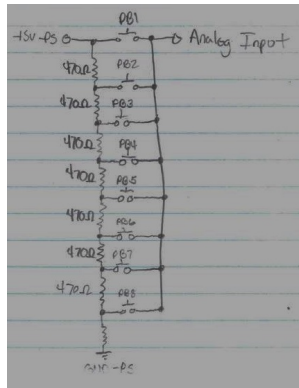 PB1
+5V-PS Analog Input
470Ω PB2
470Ω PB3
470Ω PB4
470Ω PB5
470Ω PB6
470Ω PB7
470Ω PB8
GND-PS